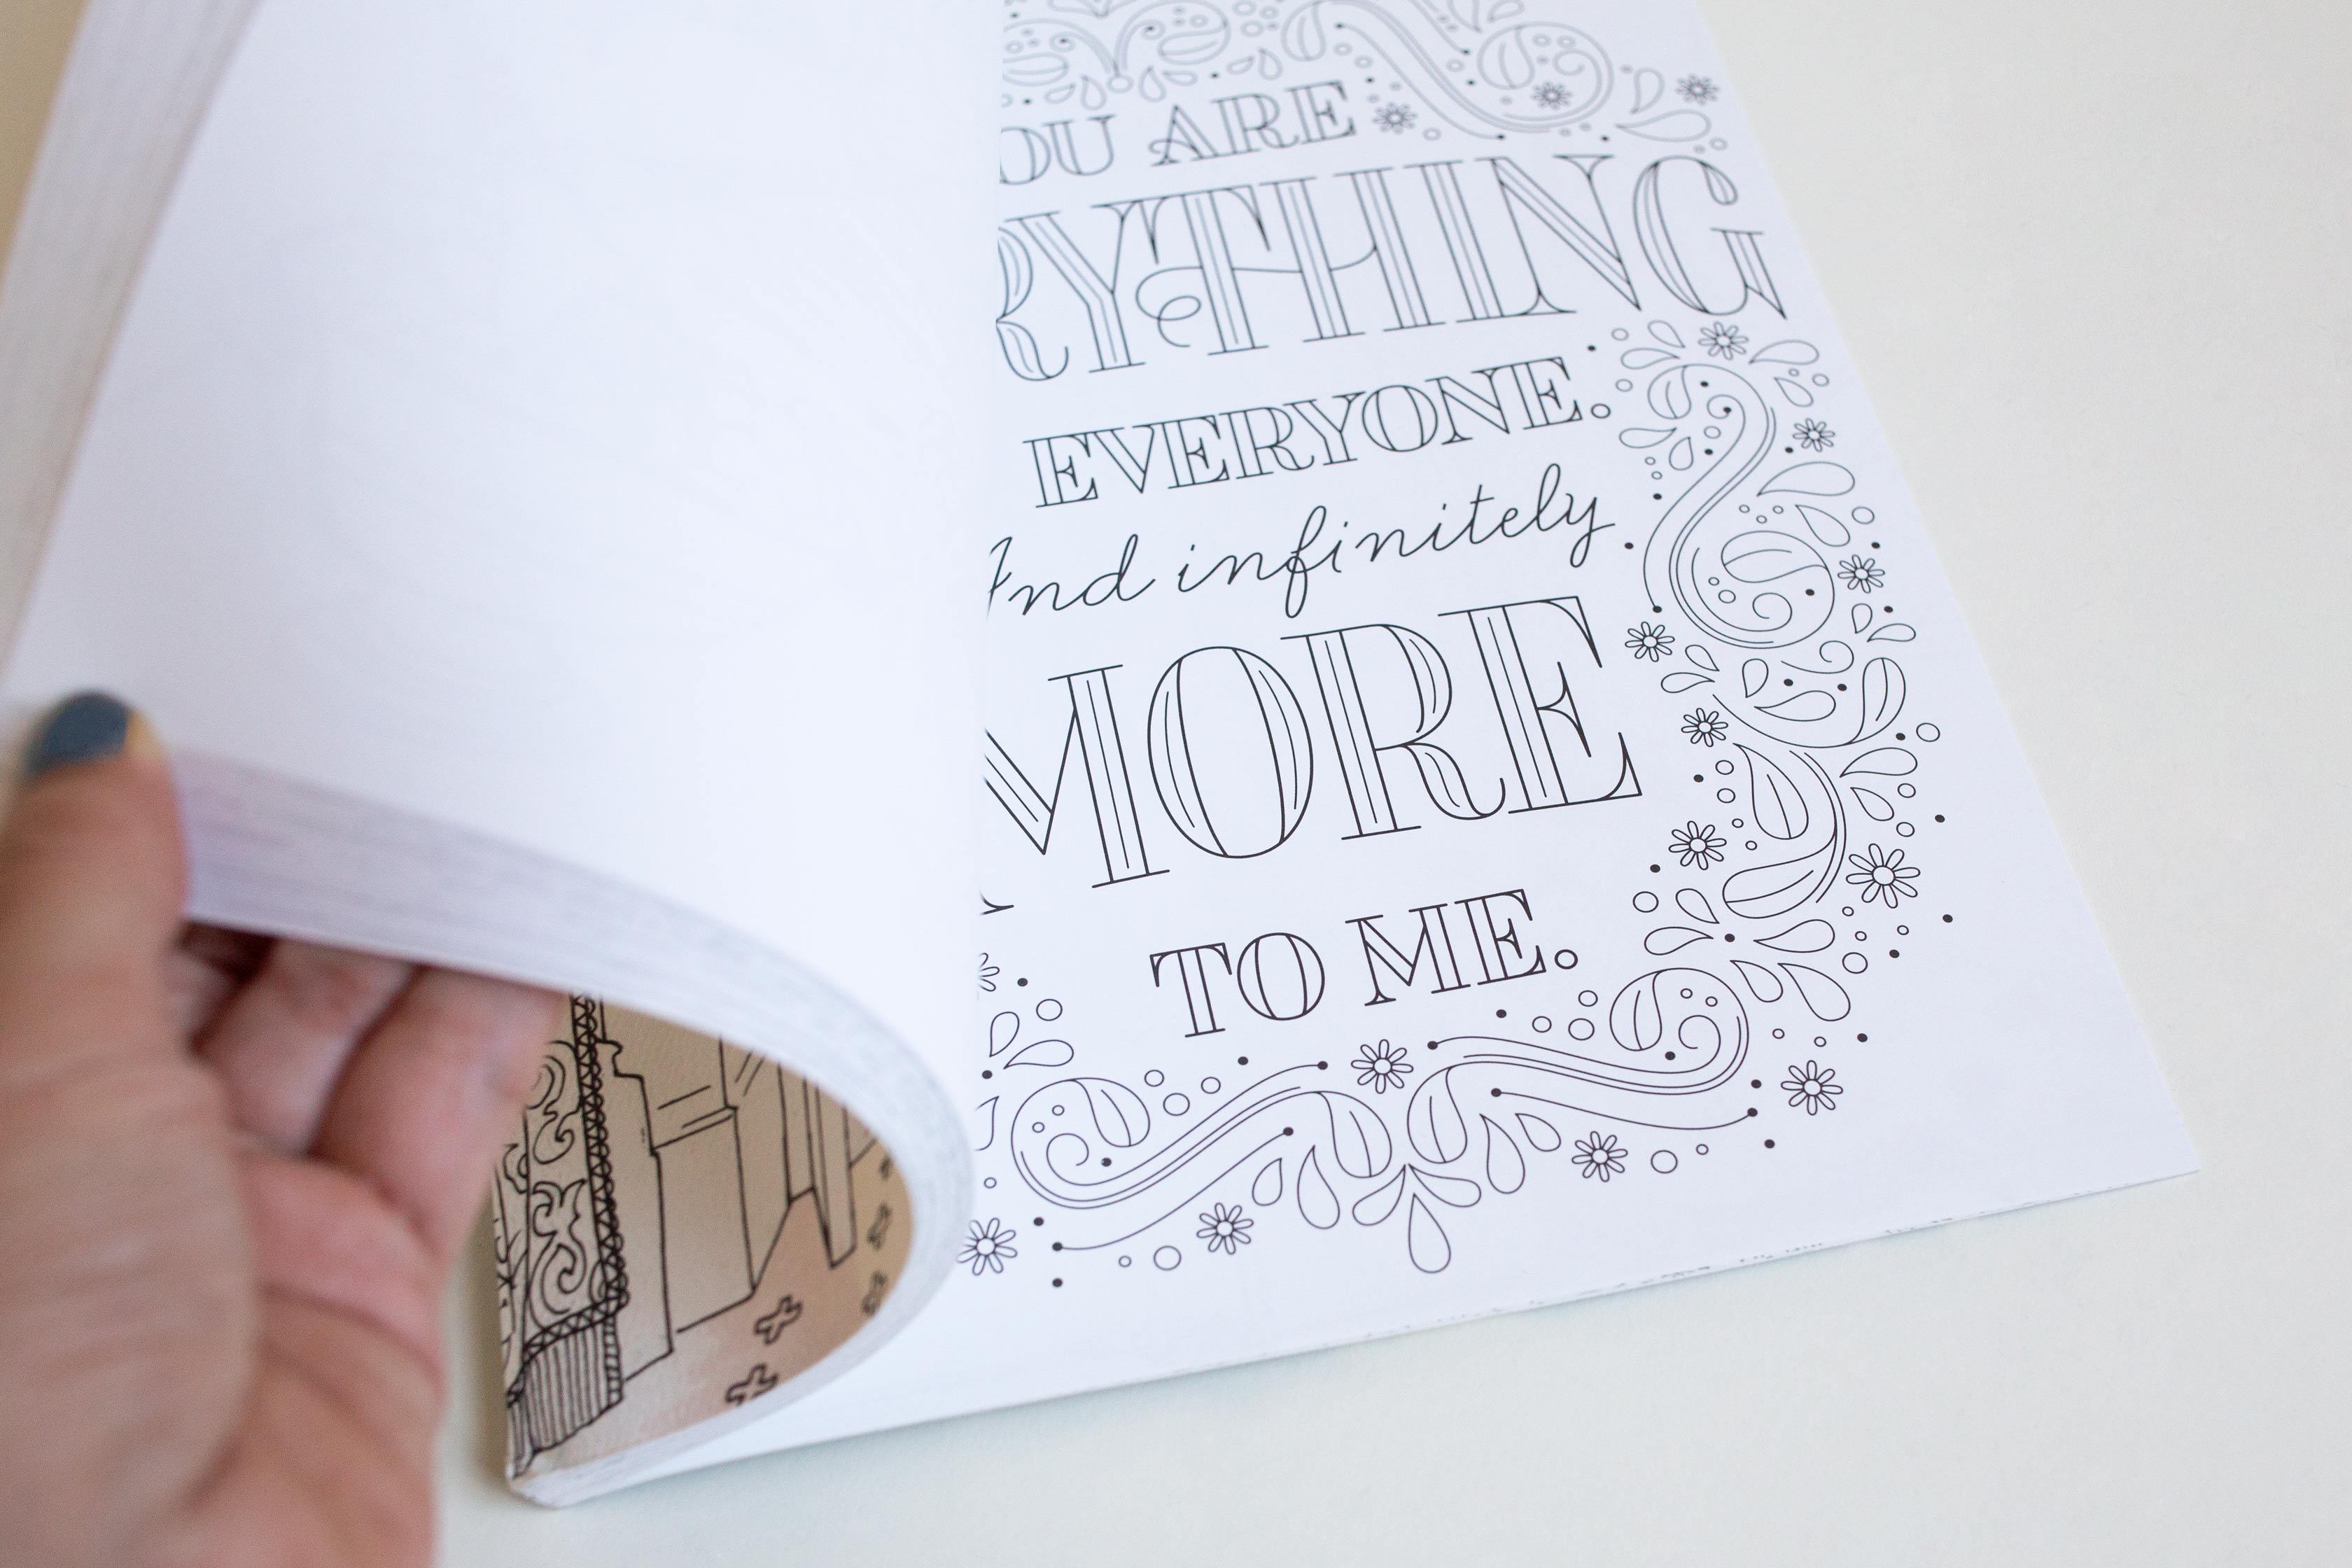 OU ARE
RYTHING
EVERYONE.
And infinitely
MORE
TO ME.